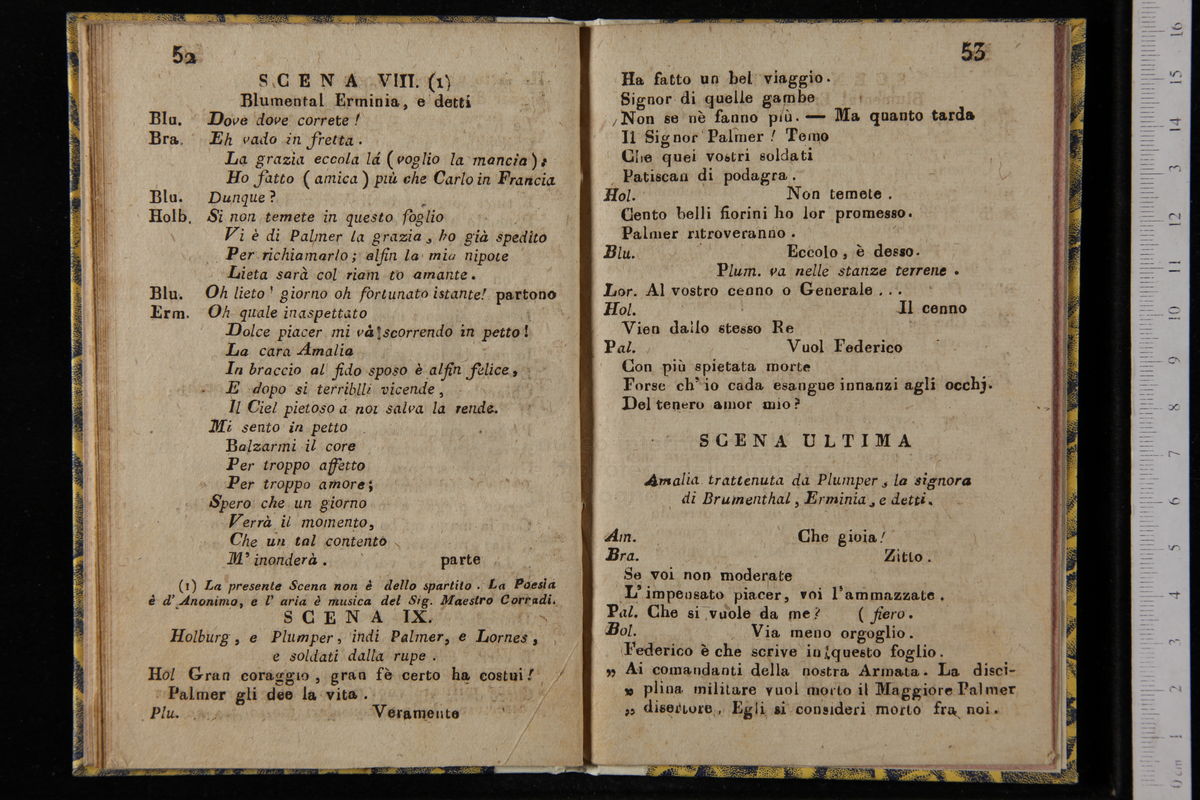 52
SCENA VIII. (1)
Blumental Erminia, e detti
Blu. Dove dove correte !
Bra. Eh vado in fretta .
La grazia eccola lá ( voglio la mancia ) ;
Ho fatto ( amica ) più che Carlo in Francia
Blu. Dunque ?
Holb. Si non temete in questo foglio
Vi è di Palmer la grazia , ho già spedito
Per richiamarlo ; alfin la mia nipote
Lieta sarà col riam to amante .
Blu. Oh lieto ' giorno oh fortunato istante! partono
Erm. Oh quale inaspettato
Dolce piacer mi và scorrendo in petto !
La cara Amalia
In braccio al fido sposo è alfin felice ,
E dopo si terribili vicende ,
Il Ciel pietoso a noi salva la rende.
Mi sento in petto
Balzarmi il core
Per troppo affetto
Per troppo amore ;
Spero che un giorno
Verrà il momento,
Che un tal contento
M' inonderà . parte
(1) La presente Scena non è dello spartito . La Poesia
è d' Anonimo, e l' aria è musica del Sig. Maestro Corradi.
SCENA IX.
Holburg , e Plumper , indi Palmer, e Lornes ,
e soldati dalla rupe .
Hol Gran coraggio , gran fè certo ha costui !
Palmer gli dee la vita .
Plu. Veramente
53
Ha fatto un bel viaggio .
Signor di quelle gambe
Non se nè fanno più. — Ma quanto tarda
Il Signor Palmer ! Temo
Che quei vostri soldati
Patiscan di podagra .
Hol. Non temete .
Cento belli fiorini ho lor promesso.
Palmer ritroveranno .
Blu. Eccolo , è desso.
Plum. va nelle stanze terrene .
Lor. Al vostro cenno o Generale . . .
Hol. Il cenno
Vien dallo stesso Re
Pal. Vuol Federico
Con più spietata morte
Forse ch' io cada esangue innanzi agli occhj.
Del tenero amor mio ?
SCENA ULTIMA
Amalia trattenuta da Plumper , la signora
di Brumenthal , Erminia , e detti.
Am. Che gioia !
Bra. Zitto .
Se voi non moderate
L' impensato piacer, voi l'ammazzate .
Pal. Che si vuole da me ? ( fiero .
Bol. Via meno orgoglio .
Federico è che scrive in questo foglio .
„ Ai comandanti della nostra Armata. La disci-
„ plina militare vuol morto il Maggiore Palmer
„ disertore . Egli si consideri morto fra noi .